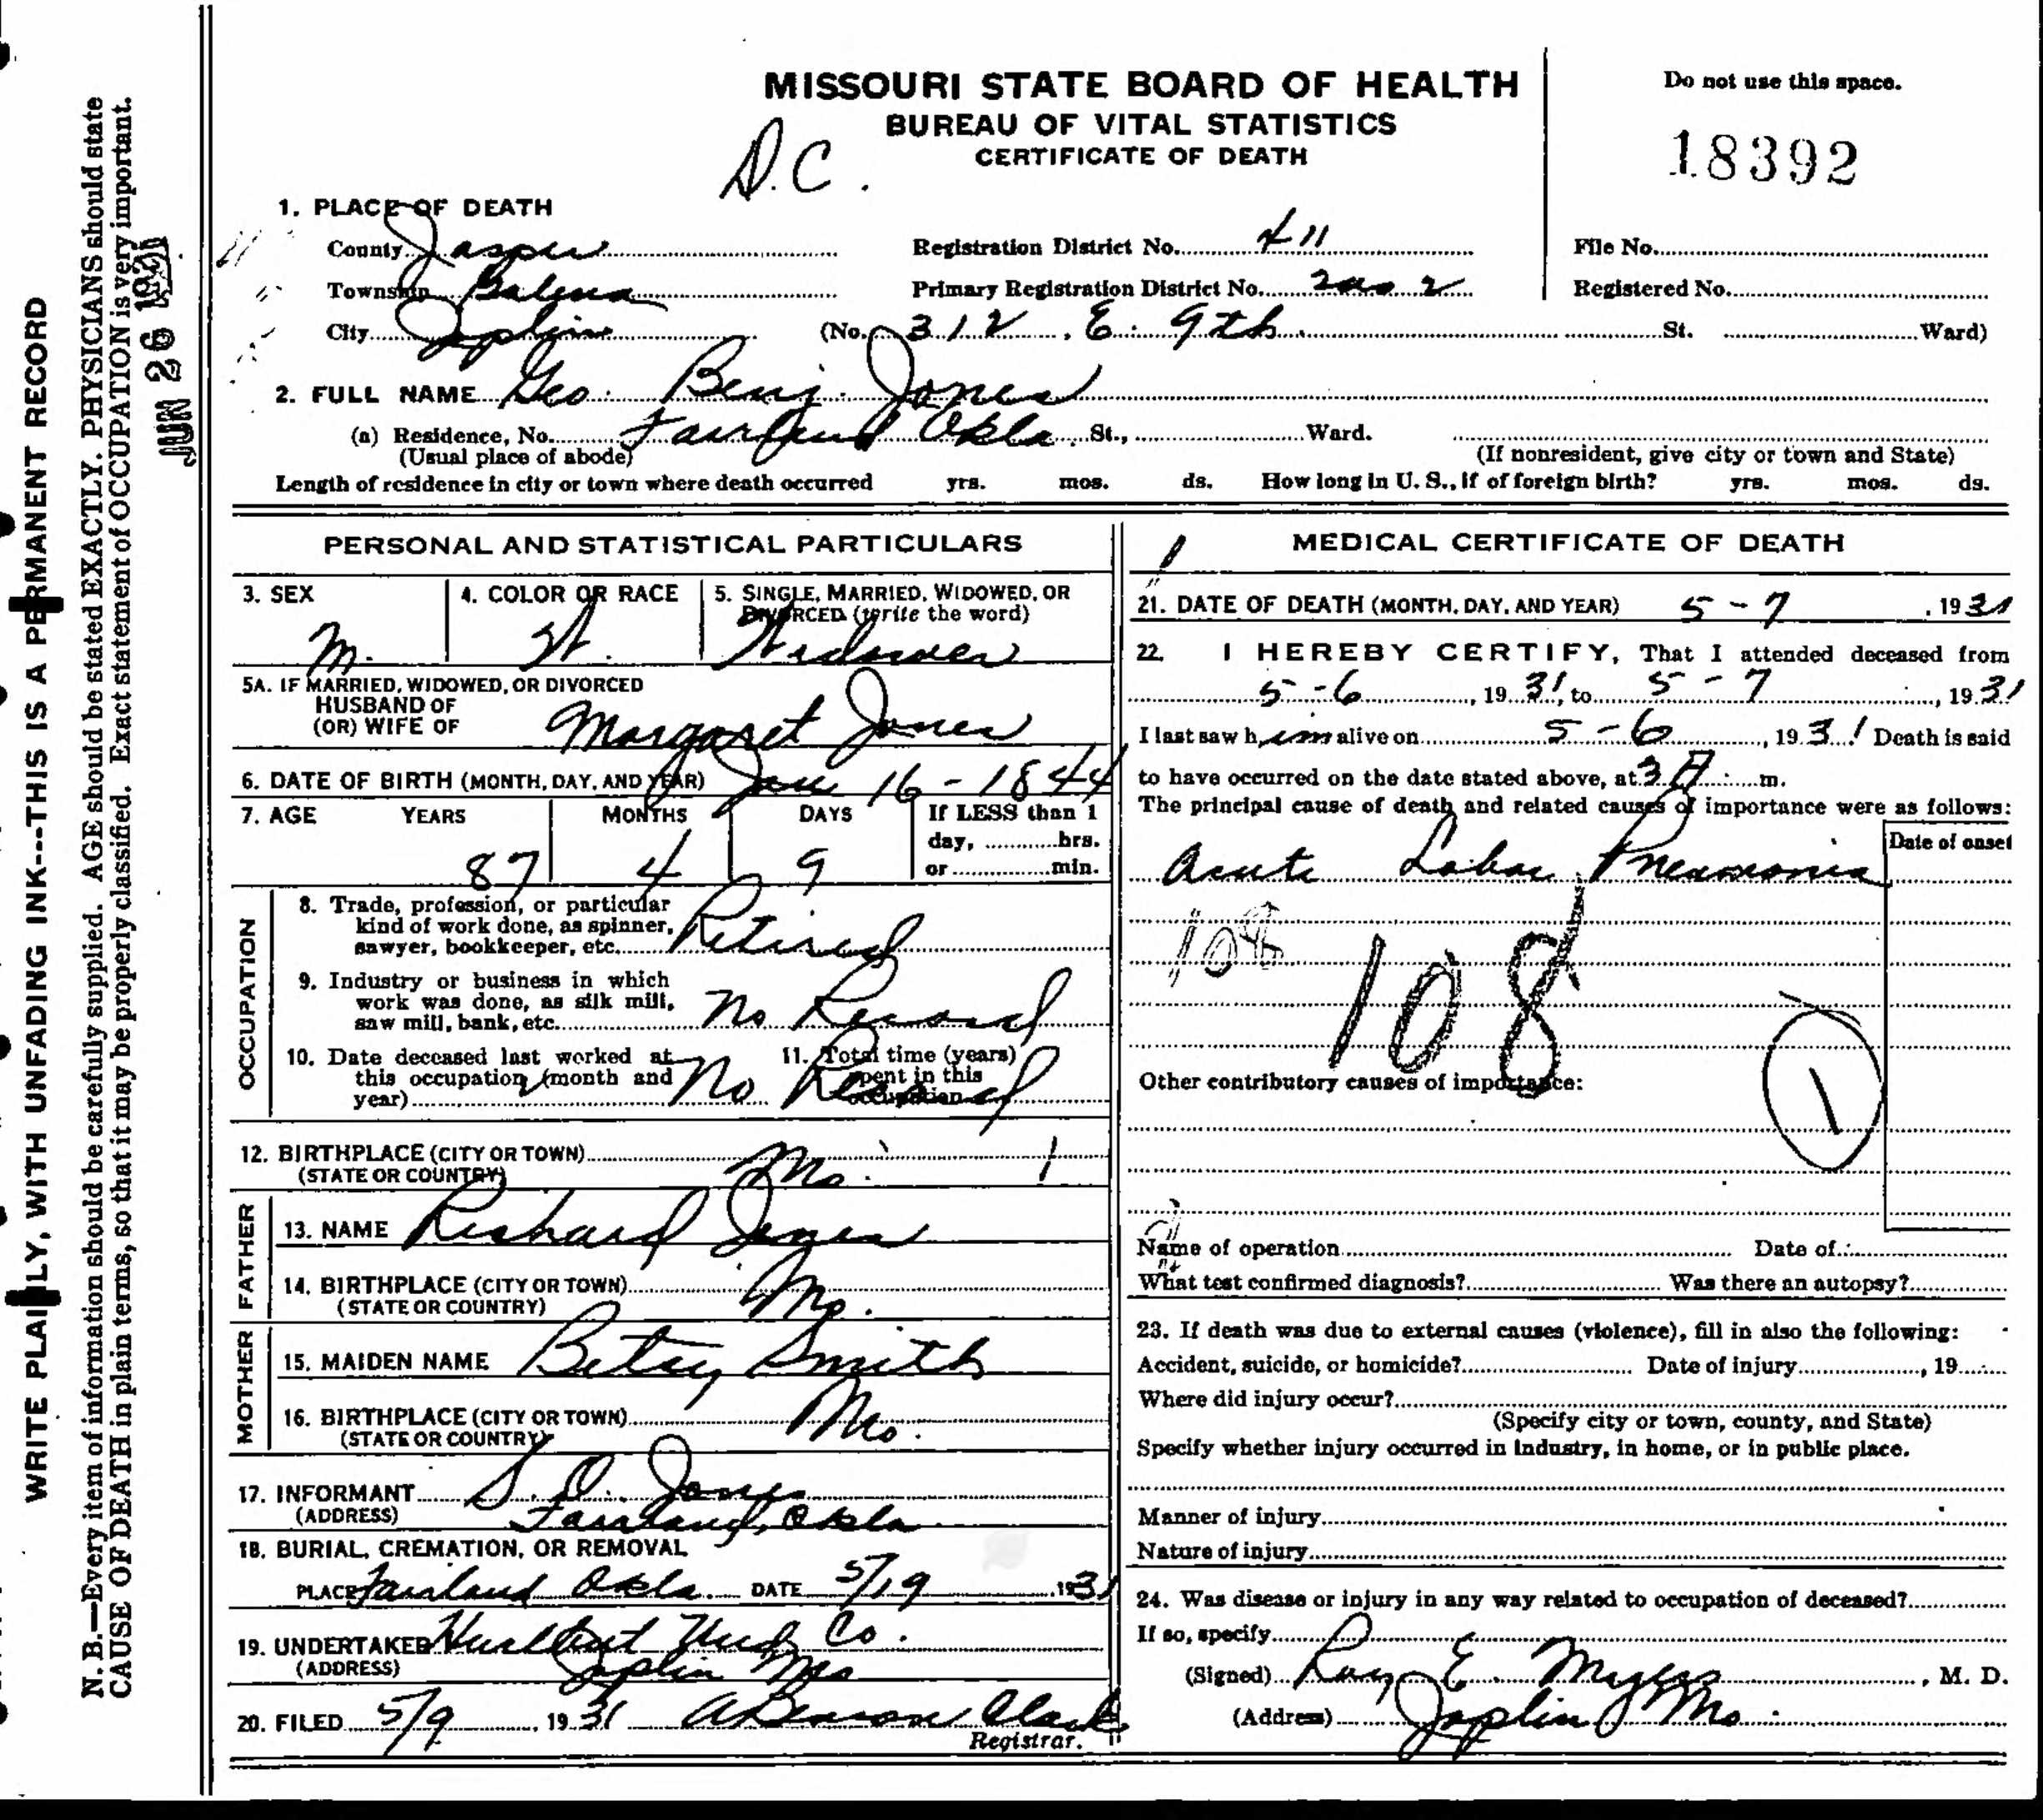 MISSOURI STATE BOARD OF HEALTH
BUREAU OF VITAL STATISTICS
CERTIFICATE OF DEATH
D.C.
Do not use this space.
18392
1. PLACE OF DEATH
County Jasper
Registration District No. 411
File No.
Township Galena
Primary Registration District No. 2002
Registered No.
City Joplin (No. 312, E. 9th. St. Ward)
2. FULL NAME Geo. Benj. Jones
(a) Residence, No. Fairland Okla. St., Ward.
(Usual place of abode) (If nonresident, give city or town and State)
Length of residence in city or town where death occurred yrs. mos. ds. How long in U. S., if of foreign birth? yrs. mos. ds.
PERSONAL AND STATISTICAL PARTICULARS
3. SEX
M.
4. COLOR OR RACE
W.
5. SINGLE, MARRIED, WIDOWED, OR
DIVORCED (write the word)
Widower
5A. IF MARRIED, WIDOWED, OR DIVORCED
HUSBAND OF
(OR) WIFE OF Margaret Jones
6. DATE OF BIRTH (MONTH, DAY, AND YEAR) 16-1844
7. AGE YEARS MONTHS DAYS If LESS than 1
day, hrs.
or min.
87 4 9
OCCUPATION
8. Trade, profession, or particular
kind of work done, as spinner,
sawyer, bookkeeper, etc. Retired
9. Industry or business in which
work was done, as silk mill,
saw mill, bank, etc. No Record
10. Date deceased last worked at
this occupation (month and
year) No Record
11. Total time (years)
spent in this
occupation
12. BIRTHPLACE (CITY OR TOWN)
(STATE OR COUNTRY) Mo. 1
FATHER
13. NAME Richard Jones
14. BIRTHPLACE (CITY OR TOWN)
(STATE OR COUNTRY) Mo.
MOTHER
15. MAIDEN NAME Betsy Smith
16. BIRTHPLACE (CITY OR TOWN)
(STATE OR COUNTRY) Mo.
17. INFORMANT S. D. Jones
(ADDRESS) Fairland, Okla
18. BURIAL, CREMATION, OR REMOVAL
PLACE Fairland Okla. DATE 5/19 1931
19. UNDERTAKER Hurlbut Und Co.
(ADDRESS) Joplin Mo
20. FILED 5/9, 1931 A Benson Clark
Registrar.
MEDICAL CERTIFICATE OF DEATH
21. DATE OF DEATH (MONTH, DAY, AND YEAR) 5-7, 1931
22. I HEREBY CERTIFY, That I attended deceased from
5-6, 1931, to 5-7, 1931
I last saw him alive on 5-6, 1931 Death is said
to have occurred on the date stated above, at 3 A. m.
The principal cause of death and related causes of importance were as follows:
Date of onset
Acute Lobar Pneumonia
108
108
Other contributory causes of importance:
1
Name of operation Date of
What test confirmed diagnosis? Was there an autopsy?
23. If death was due to external causes (violence), fill in also the following:
Accident, suicide, or homicide? Date of injury, 19
Where did injury occur?
(Specify city or town, county, and State)
Specify whether injury occurred in industry, in home, or in public place.
Manner of injury
Nature of injury
24. Was disease or injury in any way related to occupation of deceased?
If so, specify
(Signed) Ray E. Myers, M. D.
(Address) Joplin Mo.
WRITE PLAINLY, WITH UNFADING INK---THIS IS A PERMANENT RECORD
N. B.—Every item of information should be carefully supplied. AGE should be stated EXACTLY. PHYSICIANS should state
CAUSE OF DEATH in plain terms, so that it may be properly classified. Exact statement of OCCUPATION is very important.
JUN 26 1931